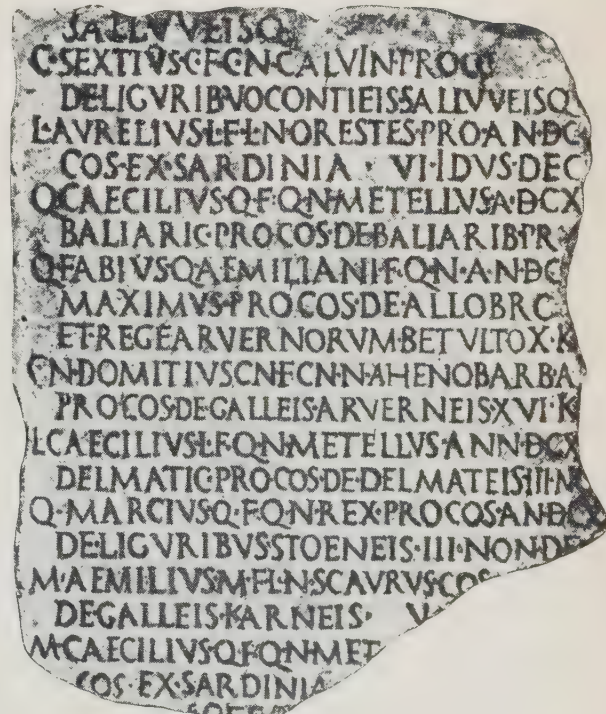 SALLVVEISQ
C·SEXTIVS·C·F·C·N·CALVIN·PROCO
DE·LIGVRIB·VOCONTIEIS·SALLVVEISQ
L·AVRELIVS·L·F·L·N·ORESTES·PRO·AN·DC
COS·EX·SARDINIA · VI·IDVS·DEC
Q·CAECILIVS·Q·F·Q·N·METELLVS·A·DCX
BALIARIC·PROCOS·DE·BALIARIB·PR
Q·FABIVS·Q·AEMILIANI·F·Q·N·AN·DC
MAXIMVS·PROCOS·DE·ALLOBRO
ET·REGE·ARVERNORVM·BETVLTO·X·K
CN·DOMITIVS·CN·F·CN·N·AHENOBARB·A
PROCOS·DE·GALLEIS·ARVERNEIS·XVI·K
L·CAECILIVS·L·F·Q·N·METELLVS·ANN·DCX
DELMATIC·PROCOS·DE·DELMATEIS·III·N
Q·MARCIVS·Q·F·Q·N·REX·PROCOS·AN·DCX
DE·LIGVRIBVS·STOENEIS·III·NON·DE
M·AEMILIVS·M·F·L·N·SCAVRVS·COS
DE·GALLEIS·KARNEIS· V
M·CAECILIVS·Q·F·Q·N·MET
COS·EX·SARDINIA